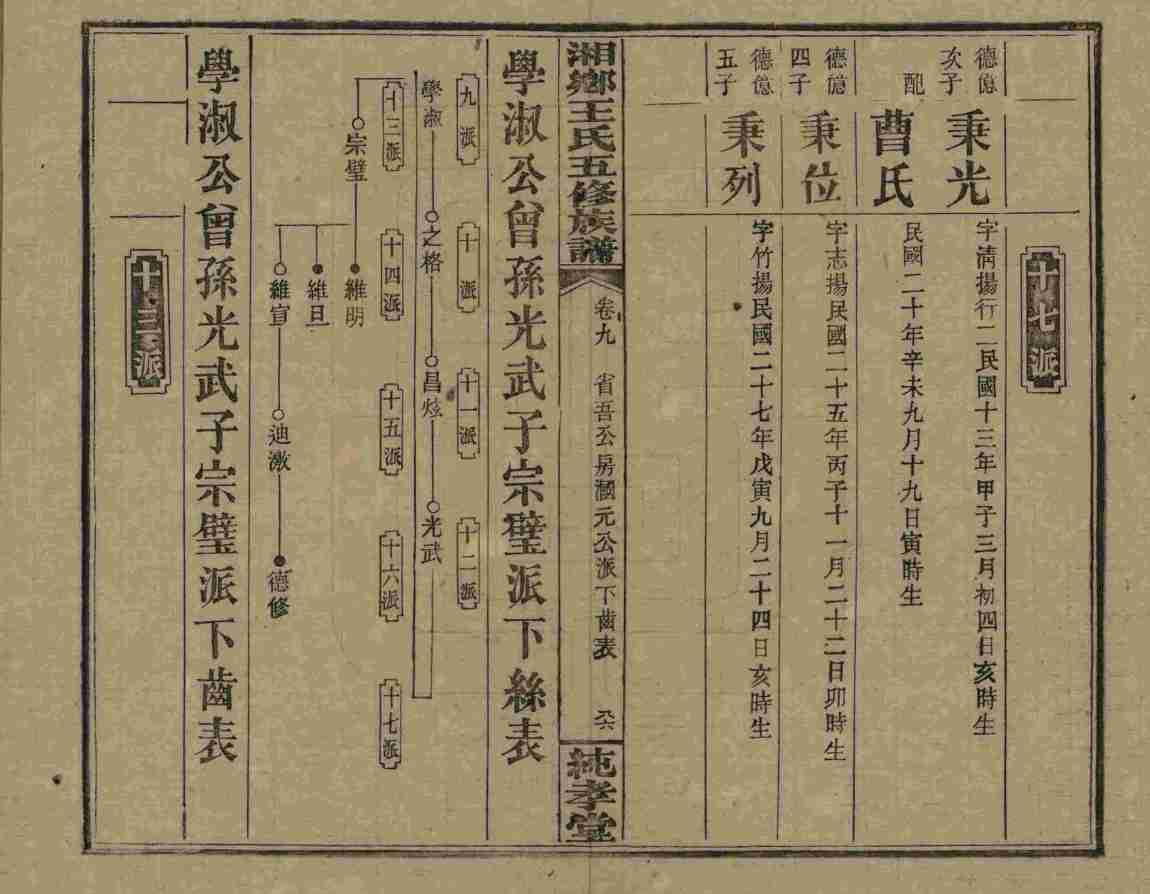 十七派
德億次子
秉光
字清揚行二民國十三年甲子三月初四日亥時生
配
曹氏
民國二十年辛未九月十九日寅時生
德億四子
秉位
字志揚民國二十五年丙子十一月二十二日卯時生
德億五子
秉列
字竹揚民國二十七年戊寅九月二十四日亥時生
湘鄉王氏五修族譜
卷九
省吾公房瀰元公派下齒表
純孝堂
學淑公曾孫光武子宗璧派下絲表
九派
十派
十一派
十二派
學淑
之格
昌炫
光武
十三派
十四派
十五派
十六派
十七派
宗璧
維明
維旦
維宣
迪激
德修
學淑公曾孫光武子宗璧派下齒表
十三派